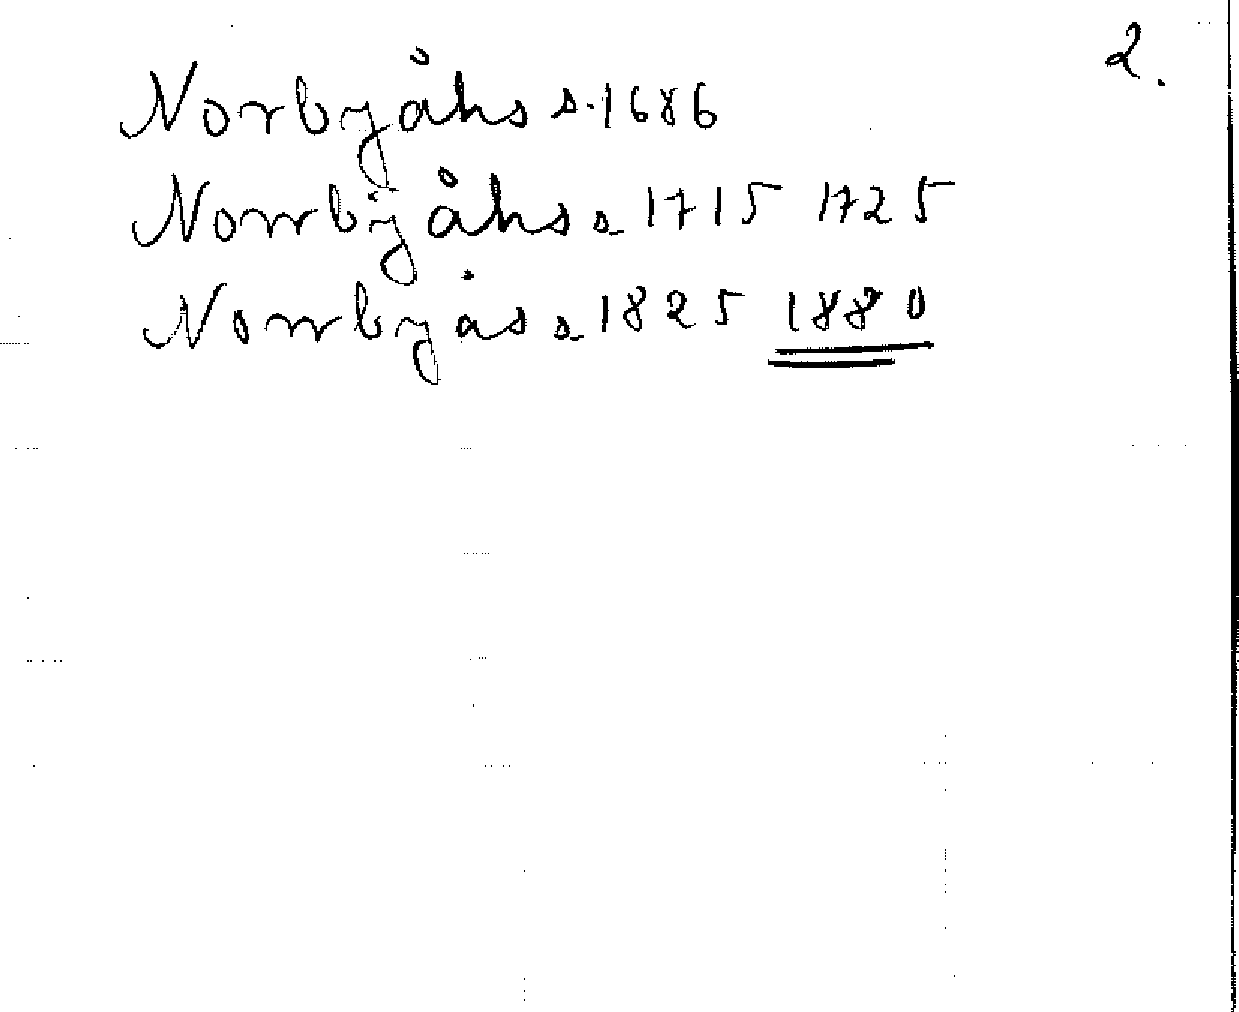 2.
Norbyåhs s. 1686
Norrbÿåhs s. 1715 1725
Norrbyås s. 1825 1880